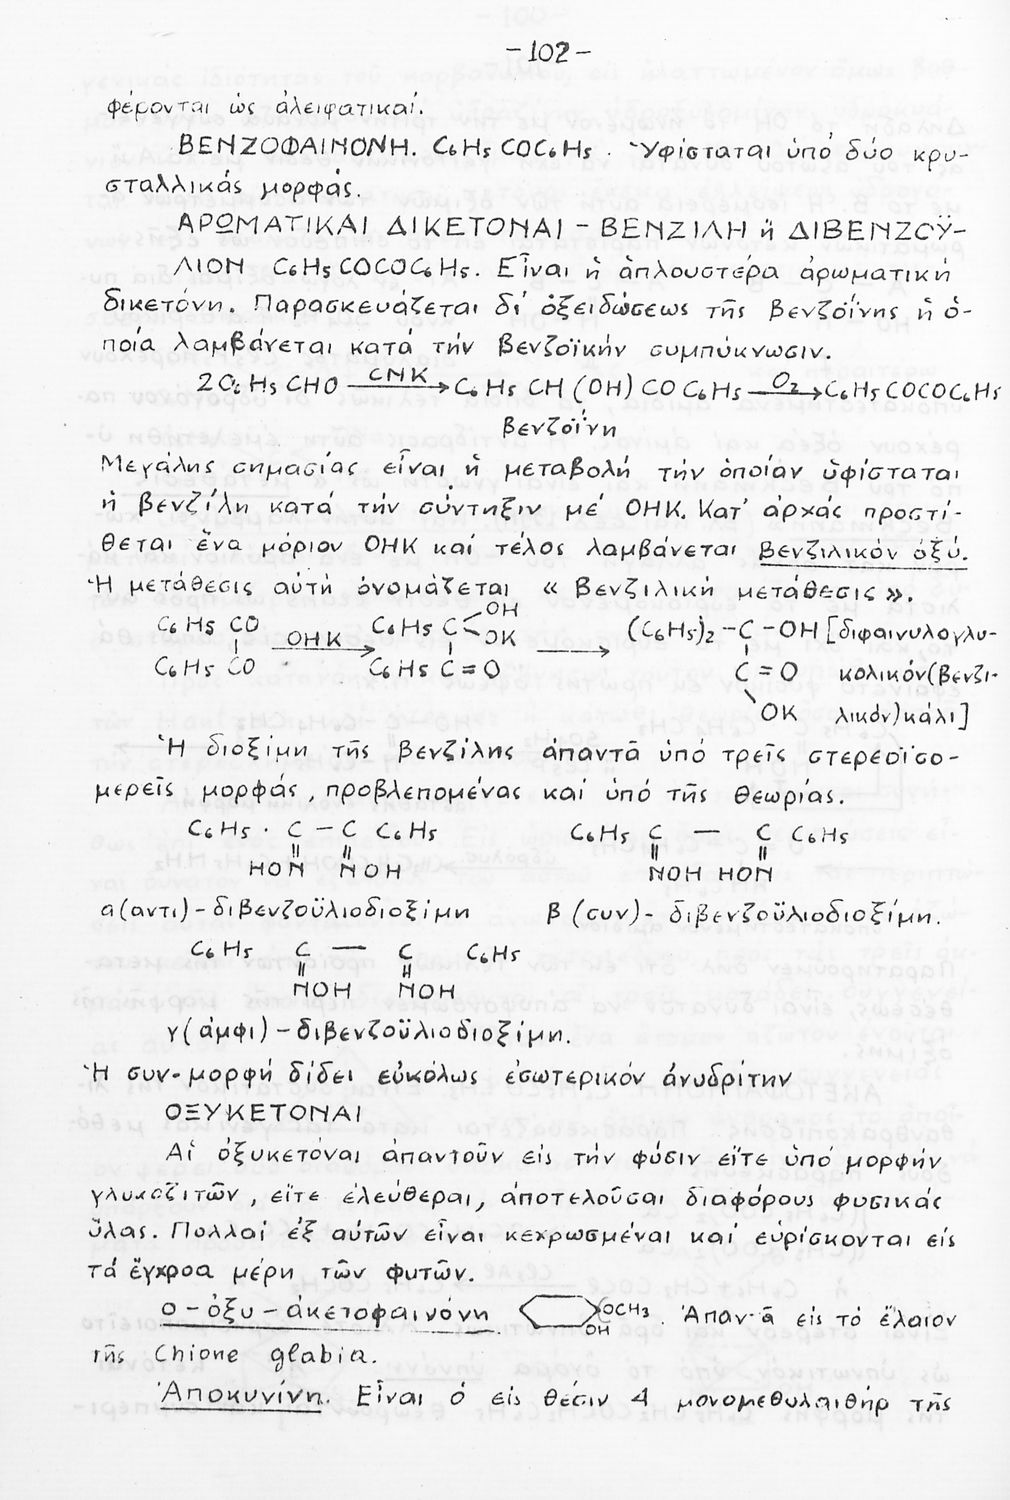 -102-
φέρονται ὡς ἀλειφατικαί.
ΒΕΝΖΟΦΑΙΝΟΝΗ. C6H5COC6H5. Ὑφίσταται ὑπό δύο κρυ-
σταλλικάς μορφάς.
ΑΡΩΜΑΤΙΚΑΙ ΔΙΚΕΤΟΝΑΙ - ΒΕΝΖΙΛΗ ἤ ΔΙΒΕΝΖΟΫ-
ΛΙΟΝ C6H5COCOC6H5. Εἶναι ἡ ἁπλουστέρα ἀρωματική
δικετόνη. Παρασκευάζεται δι' ὀξειδώσεως τῆς βενζοΐνης ἡ ὁ-
ποία λαμβάνεται κατά τήν βενζοϊκήν συμπύκνωσιν.
2C6H5CHO CNK→ C6H5CH(OH)COC6H5 O2→ C6H5COCOC6H5
βενζοΐνη
Μεγάλης σημασίας εἶναι ἡ μεταβολή τήν ὁποίαν ὑφίσταται
ἡ βενζίλη κατά τήν σύντηξιν μέ ΟΗΚ. Κατ' ἀρχας προστί-
θεται ἕνα μόριον ΟΗΚ καί τέλος λαμβάνεται βενζιλικόν ὀξύ.
Ἡ μετάθεσις αὐτή ὀνομάζεται « Βενζιλική μετάθεσις ».
C6H5 CO OHK→ C6H5 C OH OK → (C6H5)2 - C - OH [διφαινυλογλυ-
C6H5 CO C6H5 C = O C = O κολικόν(βενζι-
OK λικόν)κάλι]
Ἡ διοξίμη τῆς βενζίλης ἀπαντᾶ ὑπό τρεῖς στερεοϊσο-
μερεῖς μορφάς, προβλεπομένας καί ὑπό τῆς θεωρίας.
C6H5 · C - C C6H5 C6H5 C — C C6H5
HON NOH NOH HON
α(αντι)-διβενζοϋλιοδιοξίμη β(συν)-διβενζοϋλιοδιοξίμη.
C6H5 C — C C6H5
NOH NOH
γ(ἀμφι)-διβενζοϋλιοδιοξίμη.
Ἡ συν-μορφή δίδει εὐκόλως ἐσωτερικόν ἀνυδρίτην
ΟΞΥΚΕΤΟΝΑΙ
Αἱ ὀξυκετόναι ἀπαντοῦν εἰς τήν φύσιν εἴτε ὑπό μορφήν
γλυκοζιτῶν, εἴτε ἐλεύθεραι, ἀποτελοῦσαι διαφόρους φυσικάς
ὕλας. Πολλαί ἐξ αὐτῶν εἶναι κεχρωσμέναι καί εὑρίσκονται εἰς
τά ἔγχροα μέρη τῶν φυτῶν.
ο-ὀξυ-ἀκετοφαινόνη OCH3 OH. Ἀπαντᾶ εἰς τό ἔλαιον
τῆς Chione glabia.
Ἀποκυνίνη. Εἶναι ὁ εἰς θέσιν 4 μονομεθυλαιθήρ τῆς